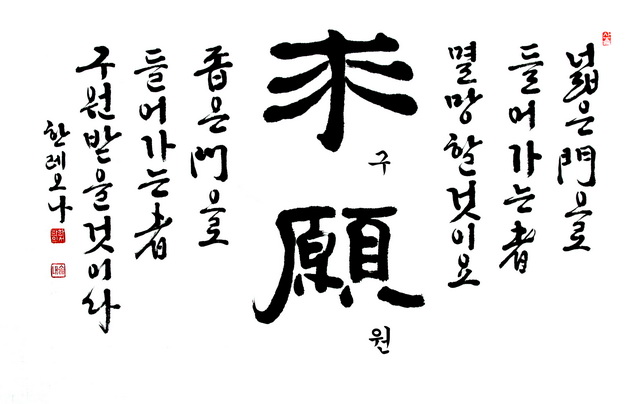 넓은門으로
들어가는者
멸망할것이요
求
구
願
원
좁은門으로
들어가는者
구원받을것이라
한레오나